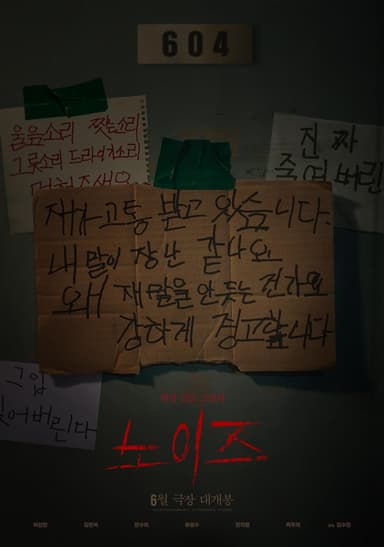 604
울음소리 짖는소리
그릇소리 드라이기소리
멈춰주세요
진짜
죽여버린
재가 고통 받고 있습니다.
내 말이 장난 같나요
왜 재 말을 안듣는 건가요
강하게 경고합니다
그입
찢어버린다
노이즈
6월 극장 대개봉